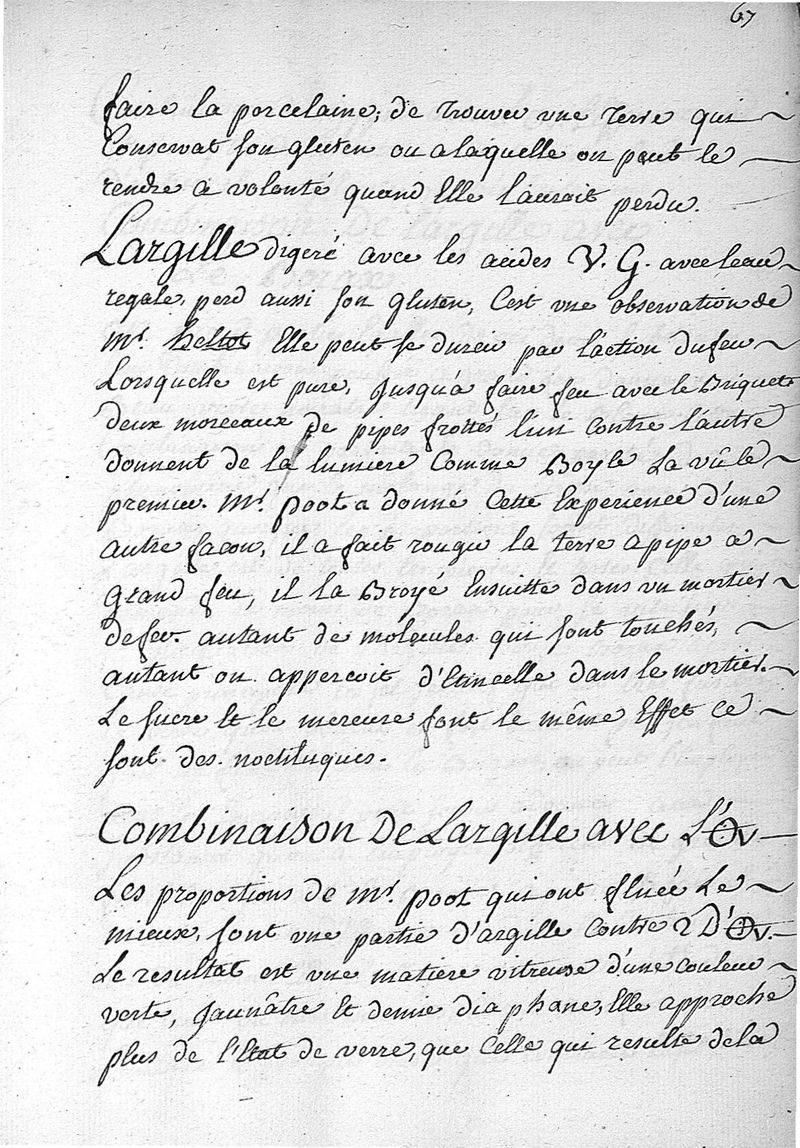 67
faire la porcelaine, de trouver une Terre qui
Conservat son gluten ou a laquelle on peut le
rendre a volonté quand Elle l'auroit perdu.
Largille digeré avec les acides V. G. avec leau
regale, perd aussi son gluten, C'est une observation de
Mr. hellot Elle peut se durcir par l'action du feu
Lorsquelle est pure, jusqu'a faire feu avec le Briquet
deux morceaux de pipes frottés l'un contre l'autre
donnent de la lumiere Comme Boyle La vû le
premier. Mr. poot a donné Cette Experience d'une
autre façon, il a fait rougir la terre a pipe a
grand feu, il la Broyé Ensuitte dans un mortier
de fer. autant de molecules qui sont touchés,
autant on apperçoit d'Etincelle dans le mortier.
Le sucre Et le mercure font le même Effet Ce
sont des noctiluques.
Combinaison De Largille avec L'
Les proportions de Mr. poot qui ont fluée Le
mieux, sont une partie d'argille Contre 2 D'
Le resultat est une matiere vitreuse d'une couleur
verte, jaunâtre Et demie diaphane, Elle approche
plus de l'Etat de verre, que Celle qui resulte de la